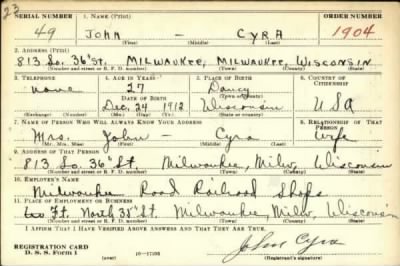 23
SERIAL NUMBER 1. NAME (Print) ORDER NUMBER
49 JOHN - CYRA 1904
(First) (Middle) (Last)
2. ADDRESS (Print)
813 So. 36th ST. MILWAUKEE, MILWAUKEE, WISCONSIN
(Number and street or R. F. D. number) (Town) (County) (State)
3. TELEPHONE 4. AGE IN YEARS 5. PLACE OF BIRTH 6. COUNTRY OF CITIZENSHIP
none 27 Dancy
DATE OF BIRTH (Town or county)
Dec. 24 1912 Wisconsin U S A
(Exchange) (Number) (Mo.) (Day) (Yr.) (State or country)
7. NAME OF PERSON WHO WILL ALWAYS KNOW YOUR ADDRESS 8. RELATIONSHIP OF THAT PERSON
Mrs. John - Cyra Wife
(Mr., Mrs., Miss) (First) (Middle) (Last)
9. ADDRESS OF THAT PERSON
813 So. 36th St. Milwaukee, Milw, Wisconsin
(Number and street or R. F. D. number) (Town) (County) (State)
10. EMPLOYER'S NAME
Milwaukee Road Railroad Shops
11. PLACE OF EMPLOYMENT OR BUSINESS
Ft. North 35th St. Milwaukee, Milw, Wisconsin
(Number and street or R. F. D. number) (Town) (County) (State)
I AFFIRM THAT I HAVE VERIFIED ABOVE ANSWERS AND THAT THEY ARE TRUE.
REGISTRATION CARD
D. S. S. Form 1 16—17105 John Cyra